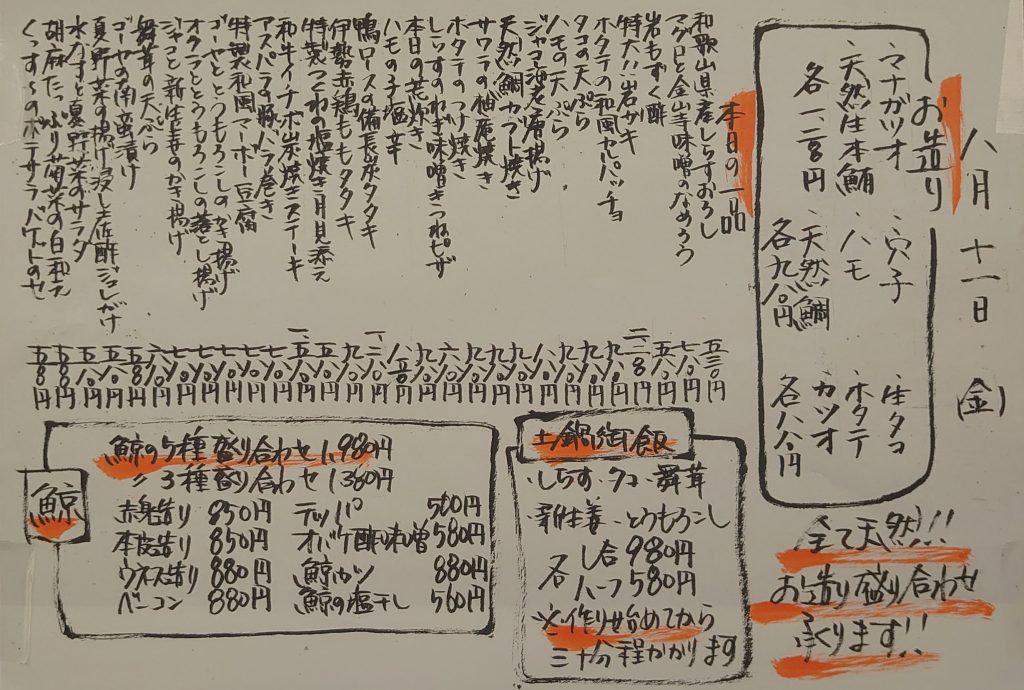 八月十一日(金)
お造り
、マナガツオ
、天然生本鮪
各一、二〇〇円
、穴子
、ハモ
、天然鯛
各九八〇円
、生タコ
、ホタテ
、カツオ
各八八〇円
全て天然!!
お造り盛り合わせ
承ります!!
本日の一品
和歌山県産しらすおろし
マグロと金山寺味噌のなめろう
岩もずく酢
特大!!岩ガキ
ホタテの和風カルパッチョ
タコの天ぷら
ハモの天ぷら
ジャコ海老唐揚げ
天然鯛カブト焼き
サワラの柚庵焼き
ホタテのつけ焼き
しらすのねぎ味噌きつねピザ
本日の荒炊き
ハモの子塩辛
鴨ロースの備長炭タタキ
伊勢赤鶏ももタタキ
特製つくねの塩焼き月見添え
和牛イチボ炭焼きステーキ
アスパラの豚バラ巻き
特製和風マーボー豆腐
ゴーヤととうもろこしのかき揚げ
オクラととうもろこしの落とし揚げ
ジャコと新生姜のかき揚げ
舞茸の天ぷら
ゴーヤの南蛮漬け
夏野菜の揚げ浸し土佐酢ジュレがけ
水なすと夏野菜のサラダ
胡麻たっぷり菊菜の白和え
くっすーのポテサラバゲットのせ
土鍋御飯
・しらす・タコ・舞茸
・新生姜・とうもろこし
各 一合 980円
ハーフ 580円
※作り始めてから
三十分程かかります
鯨
鯨の5種盛り合わせ 1,980円
〃3種盛り合わせ 1,380円
赤身造り 850円 テッパ 560円
本皮造り 850円 オバケ酢味噌 580円
ウネス造り 880円 鯨カツ 880円
ベーコン 880円 鯨の塩干し 560円